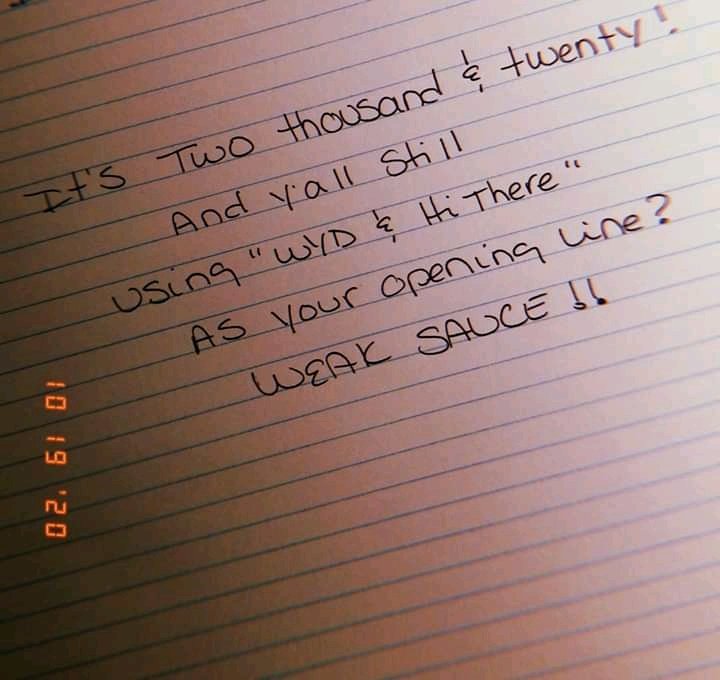 It's Two thousand & twenty!
And y'all still
using "WYD & Hi There"
As your opening line?
WEAK SAUCE !!
10 19 '20